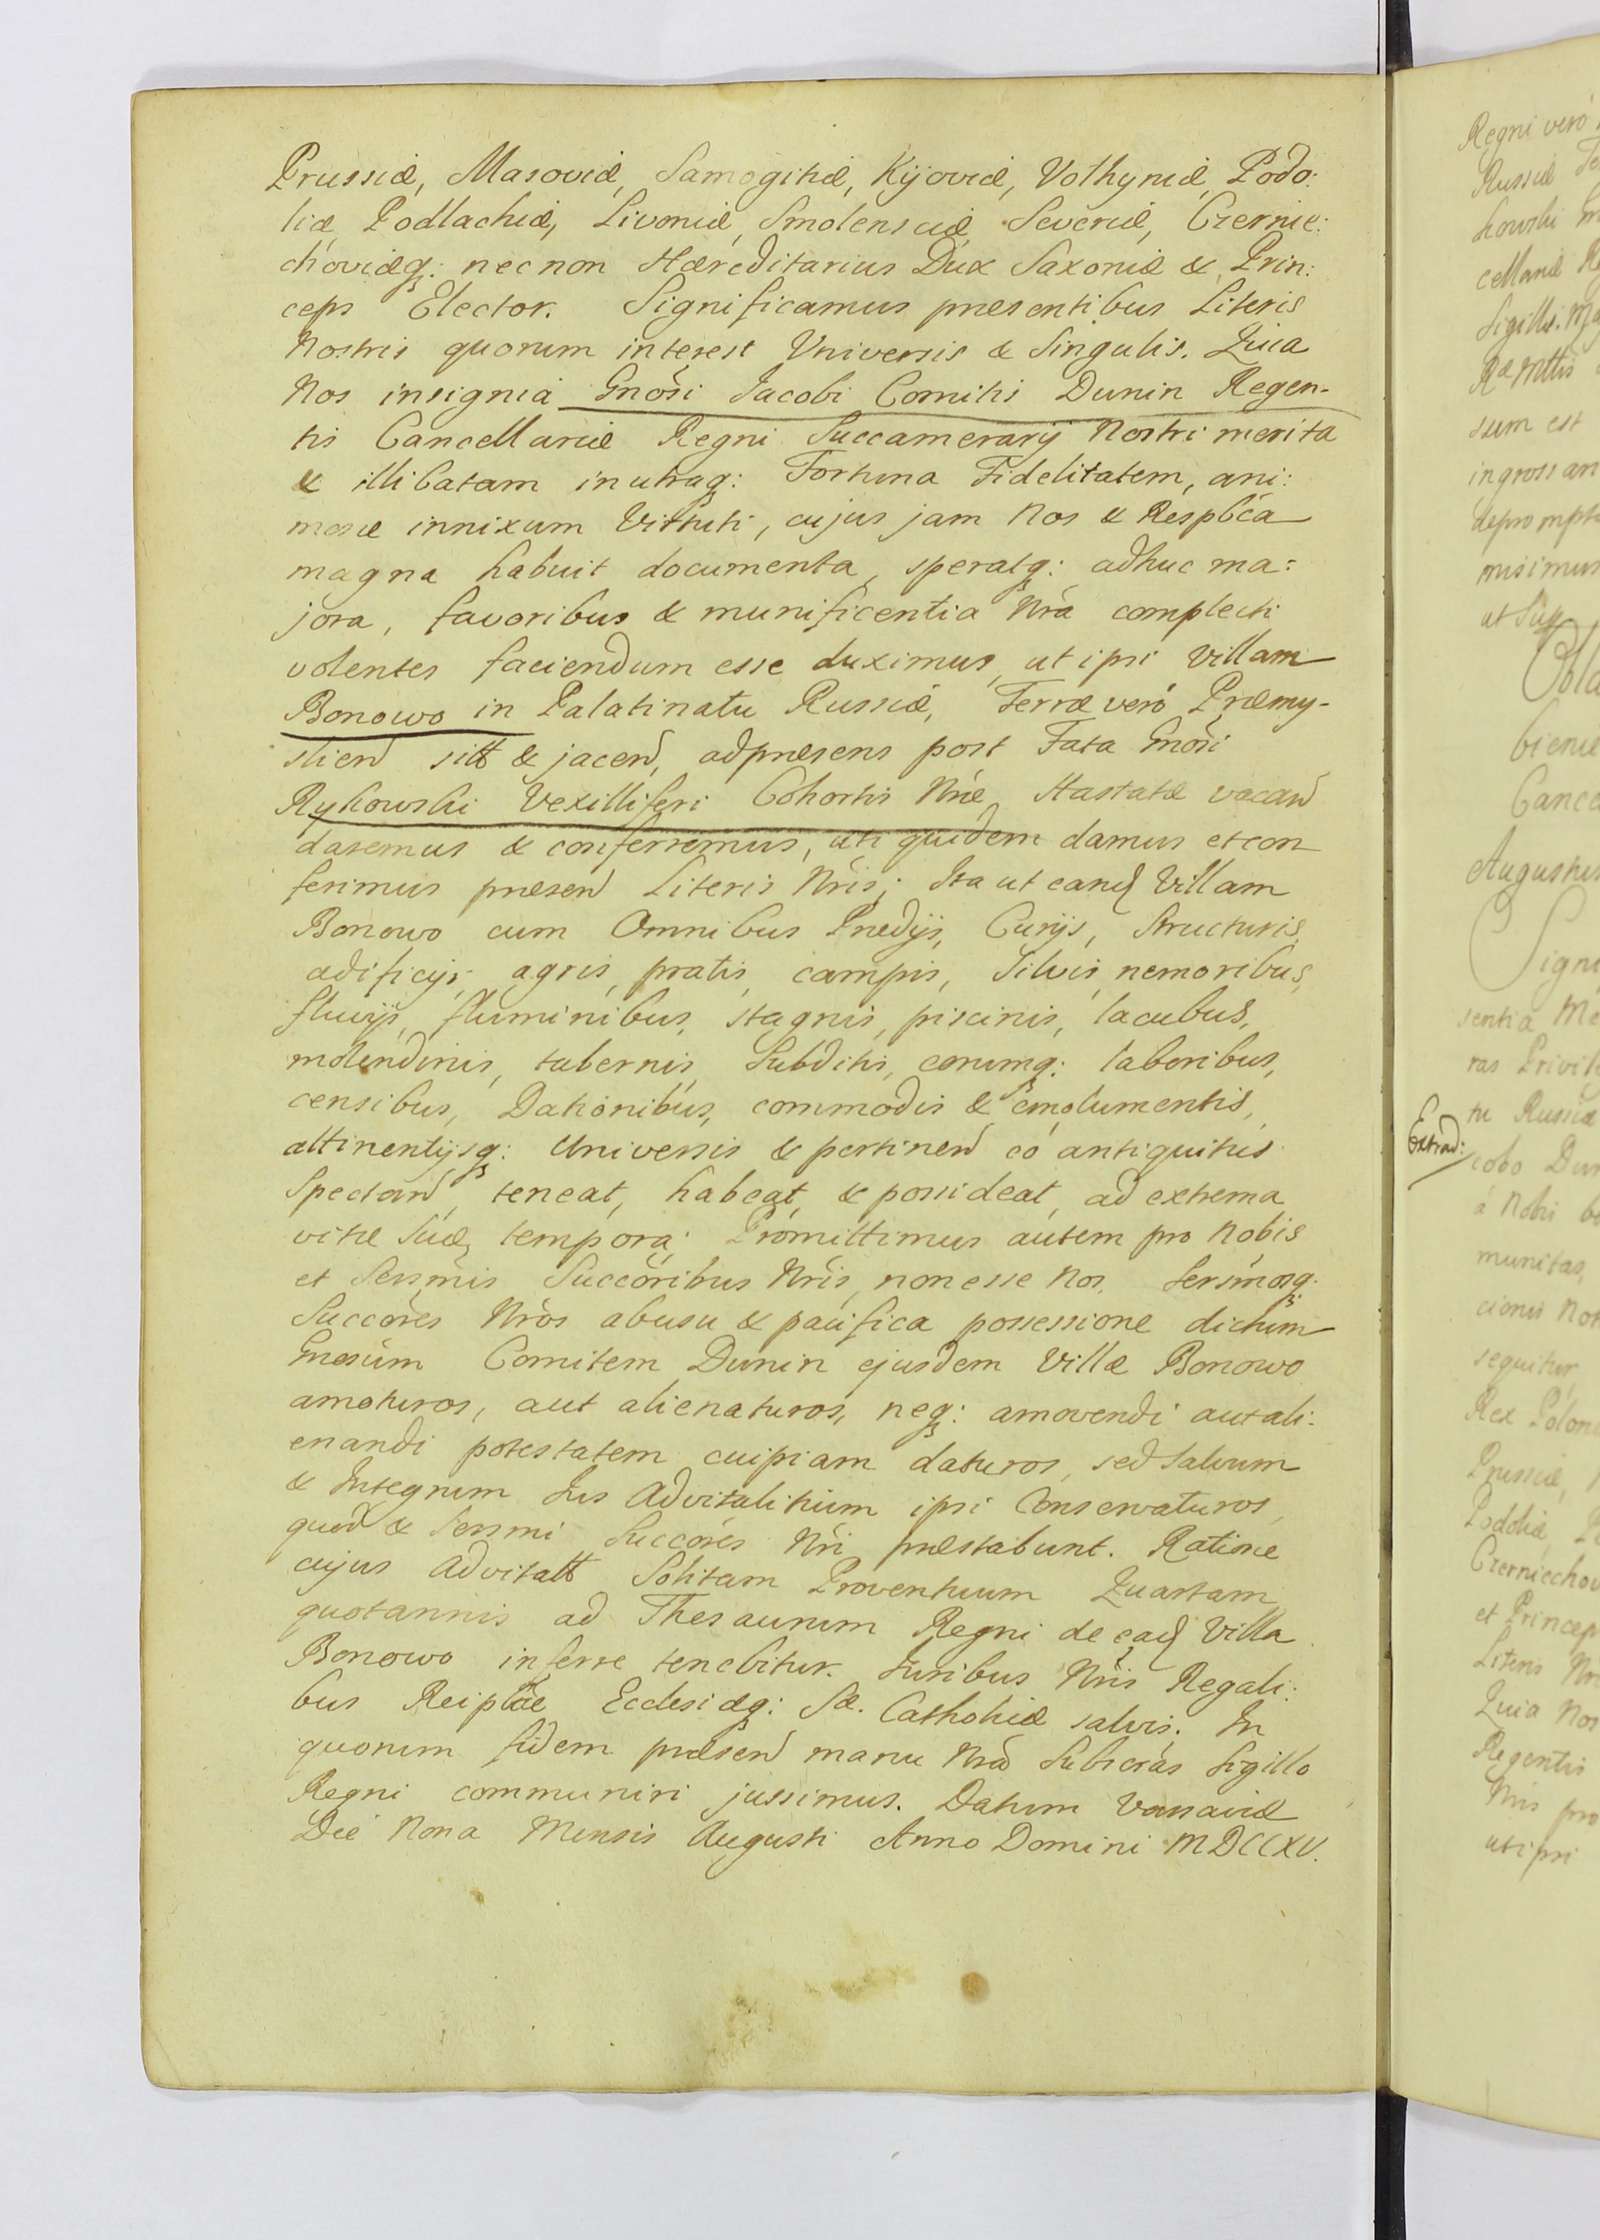 Prussiæ, Masoviæ, Samogitiæ, Kijoviæ, Volhyniæ, Podo:
liæ Podlachiæ, Livoniæ, Smolensciæ Severiæ, Czernie:
choviæq: nec non Hæreditarius Dux Saxoniæ & Prin:
ceps Elector. Significamus præsentibus Literis
Nostris quorum interest Universis & Singulis. Quia
Nos insignia Gnosi Jacobi Comitis Dunin Regen-
tis Cancellariæ Regni Succamerarij Nostri merita
& illibatam in utraq: Fortuna Fidelitatem, ani:
mosæ innixam Virtuti, cujus jam Nos & Respbca
magna habuit documenta, speratq: adhuc ma:
jora, favoribus & munificentia Nra complecti
volentes faciendum esse duximus, ut ipsi Villam
Bonowo in Palatinatu Russiæ, Terræ verò Præmy-
slien sitt & jacen, ad præsens post Fata Gnosi
Rykowski Vexilliferi Cohortis Nræ Hastatæ vacan
daremus & conferremus, uti quidem damus et con
ferimus præsen Literis Nris; Ita ut eand Villam
Bonowo cum Omnibus Prædijs, Curijs, Structuris,
ædificijs, agris, pratis, campis, Silvis, nemoribus,
fluvijs, fluminibus, stagnis, piscinis, lacubus,
molendinis, tabernis, Subditis, eorumq: laboribus,
censibus, Dationibus, commodis & emolumentis,
attinentijsq: Universis & pertinen eò antiquitus
Spectan teneat, habeat, & possideat, ad extrema
vitæ Suæ, tempora; Promittimus autem pro Nobis
et Sersmis Succoribus Nris, non esse Nos Sersmosq:
Succores Nros ab usu & pacifica possessione dictum
Gnosum Comitem Dunin ejusdem Villæ Bonowo
amoturos, aut alienaturos, neq: amovendi aut ali:
enandi potestatem cuipiam daturos, sed Salvum
& Integrum Jus Advitalitium ipsi Conservaturos,
quod & Sersmi Succores Nri præstabunt. Ratione
cujus Advitalt Solitam Proventuum Quartam
quotannis ad Thesaurum Regni de ead Villa
Bonowo inferre tenebitur. Juribus Nris Regali:
bus Reiplcæ Ecclesiæq: Sæ. Catholicæ salvis. In
quorum fidem præsen manu Nra Subscras Sigillo
Regni communiri jussimus. Datum Varsaviæ
Die Nona Mensis Augusti Anno Domini MDCCXV.
Regni verò
Russiæ
cellariæ
Sigillis
sum est
ingrossan
misimus
Cance
Augustus
Signi
ras Privil
tu Russiæ
Extrad:
cobo Dun
à Nobis
munitas,
cionis
sequitur
Rex Polon
Prussiæ,
Podoliæ,
Czerniechov
et Princep
Literis Nr
Quia Nos
Regentis
Nris pro
uti ipsi